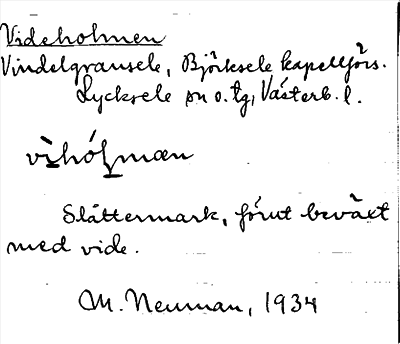 Videholmen
Vindelgransele, Björksele kapellförs.
Lycksele sn o. tg, Västerb. l.
vìhólmæn
Slåttermark, förut beväxt
med vide.
M. Neuman, 1934